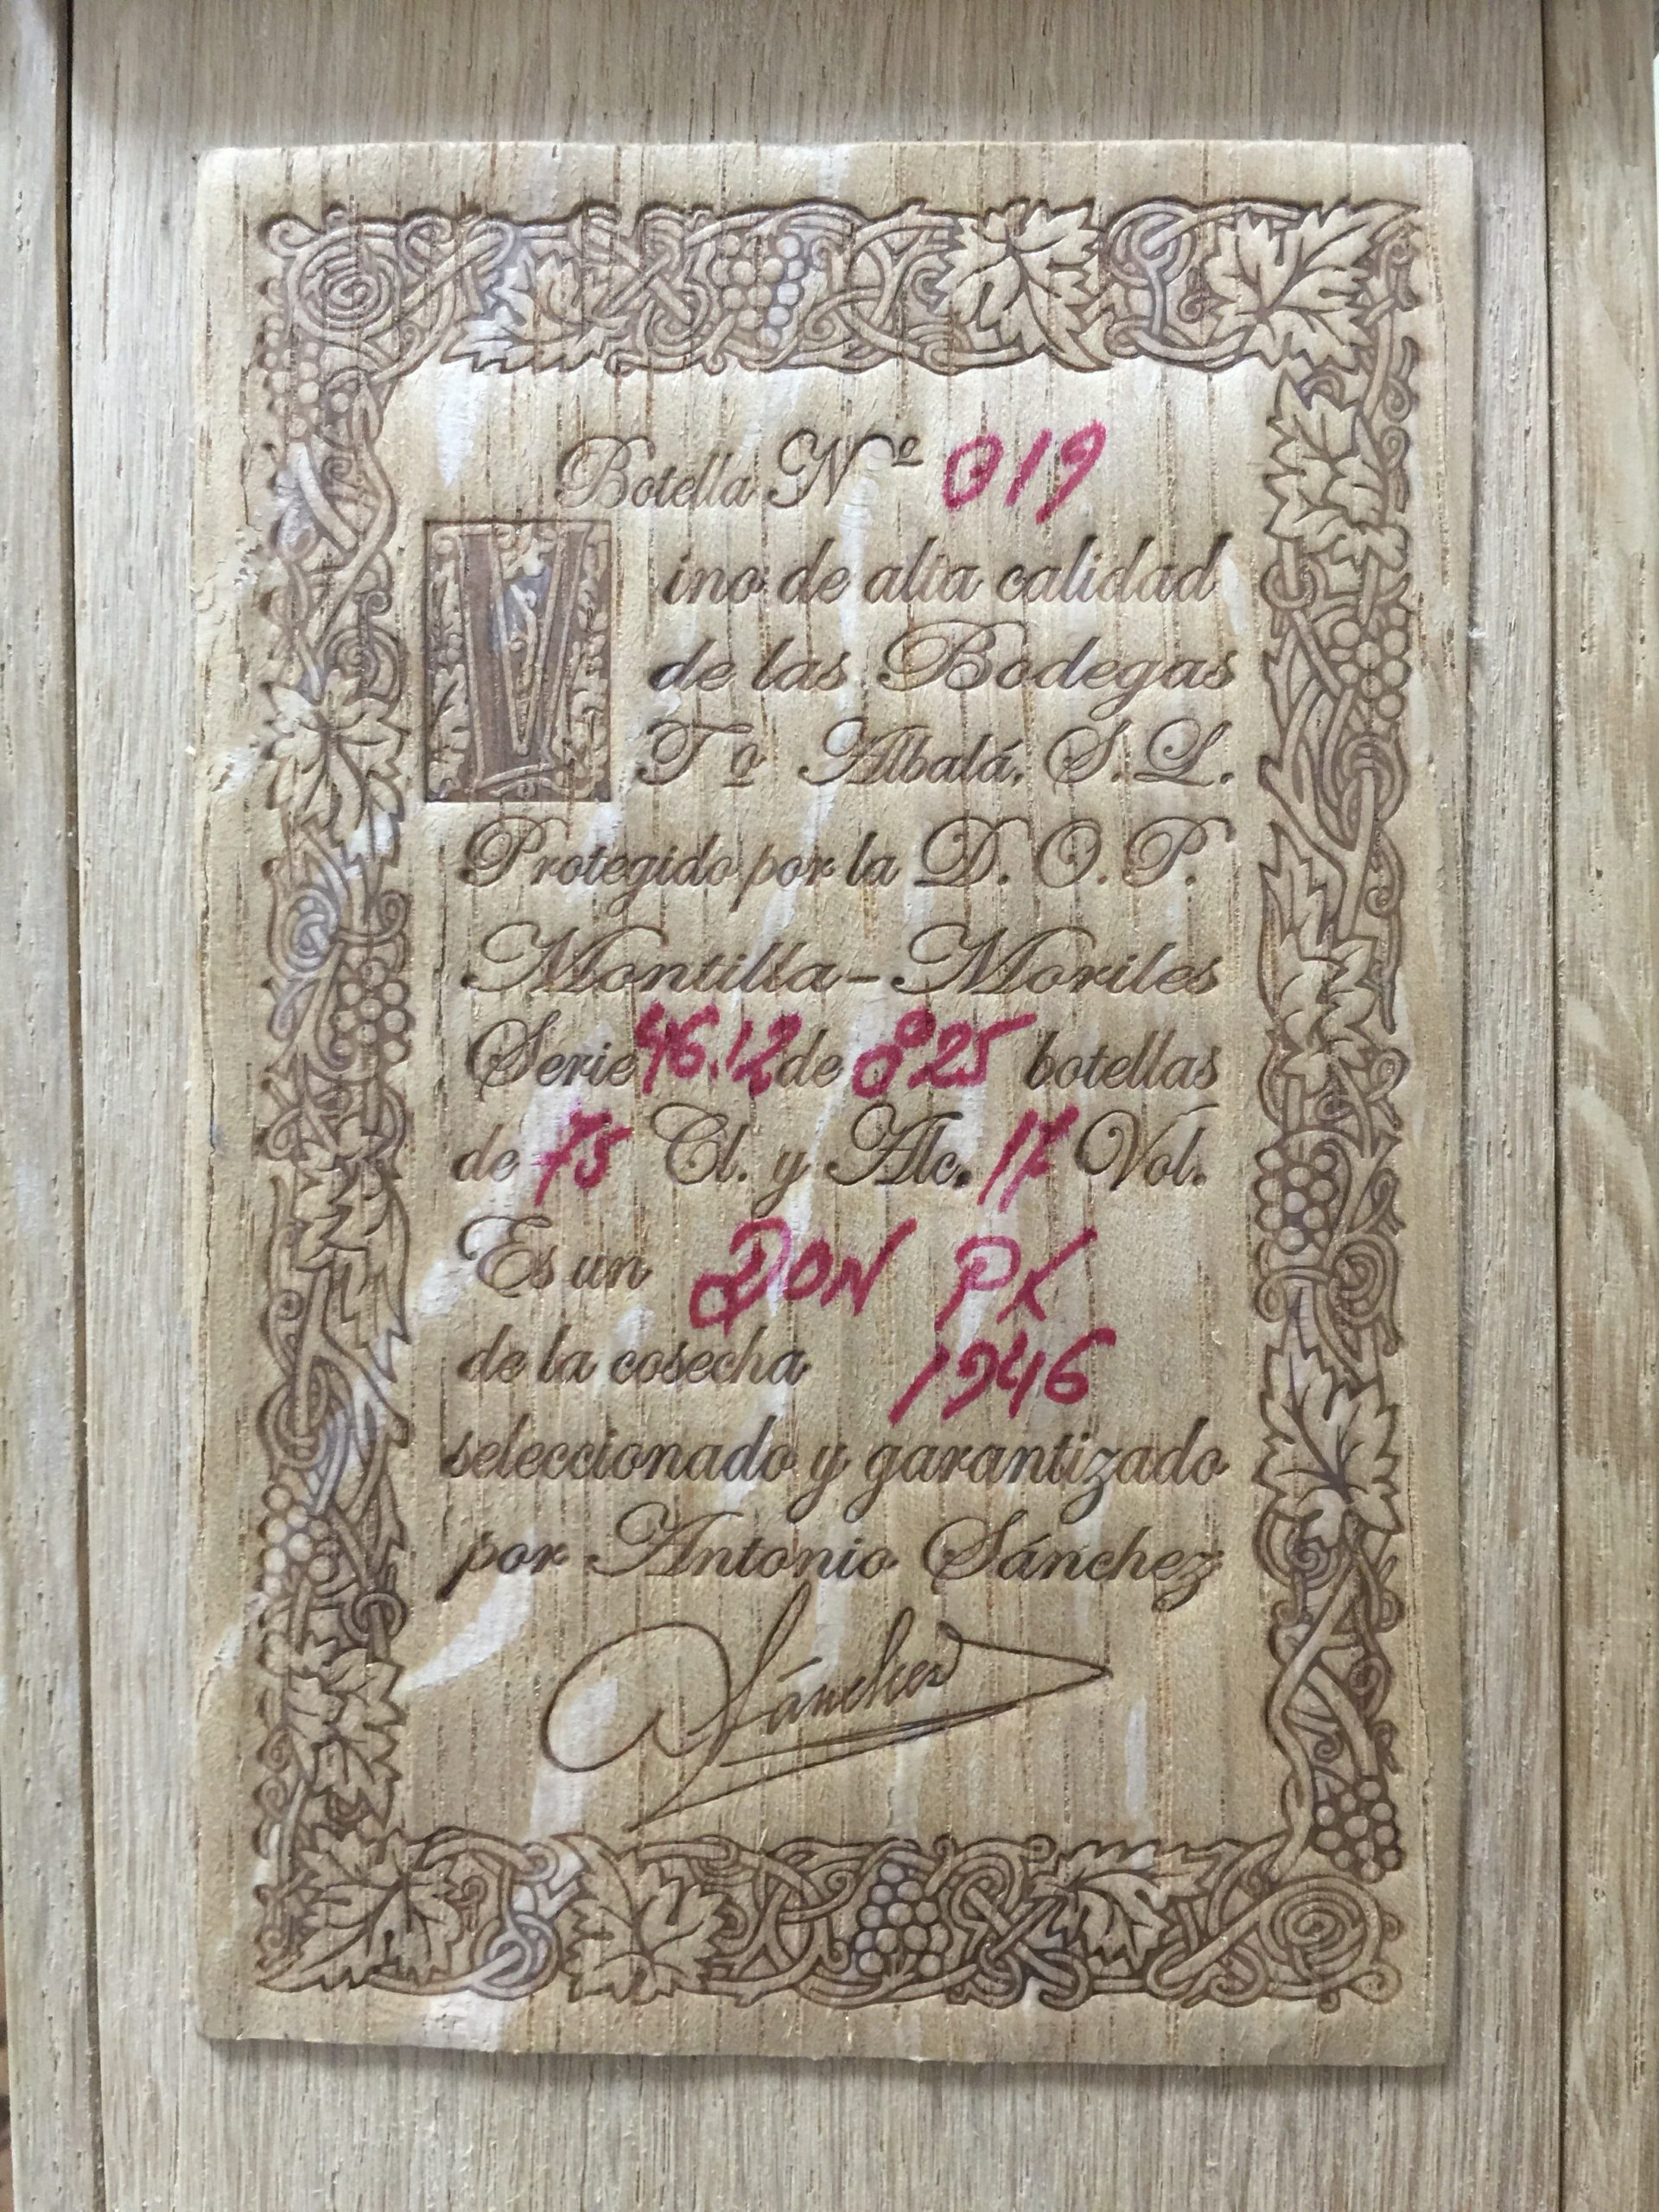 Botella Nº 019
Vino de alta calidad
de las Bodegas
Tº Albalá, S.L.
Protegido por la D.O.P.
Montilla-Moriles
Serie 46.12 de 825 botellas
de 75 Cl. y Alc. 17 Vol.
Es un DON PX
de la cosecha 1946
seleccionado y garantizado
por Antonio Sánchez
Sánchez